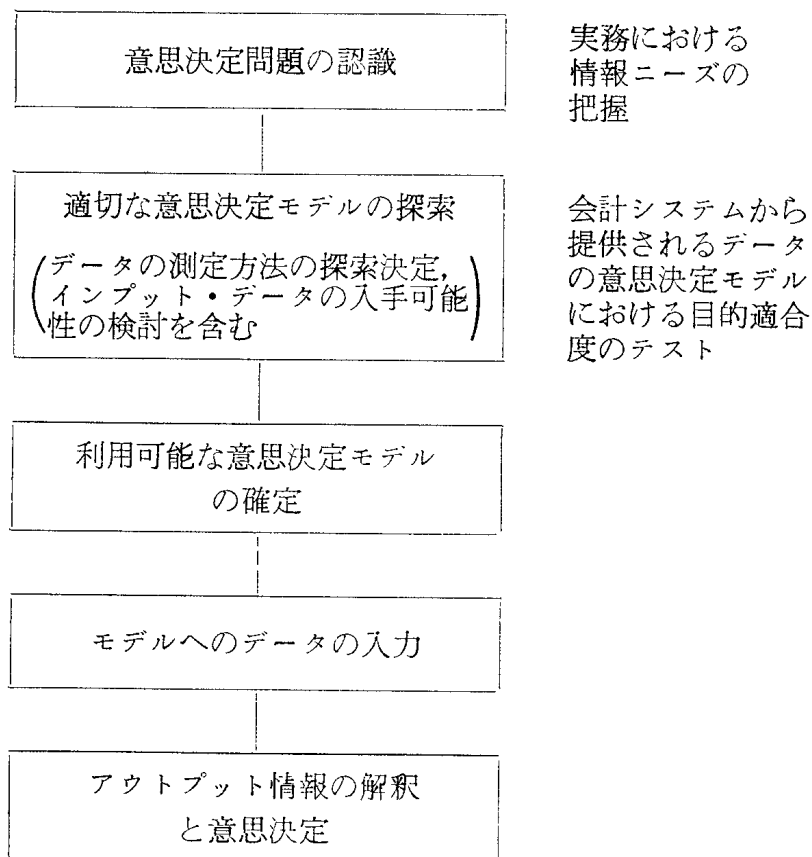 意思決定問題の認識
実務における
情報ニーズの
把握
適切な意思決定モデルの探索
(データの測定方法の探索決定,
インプット・データの入手可能
性の検討を含む)
会計システムから
提供されるデータ
の意思決定モデル
における目的適合
度のテスト
利用可能な意思決定モデル
の確定
モデルへのデータの入力
アウトプット情報の解釈
と意思決定